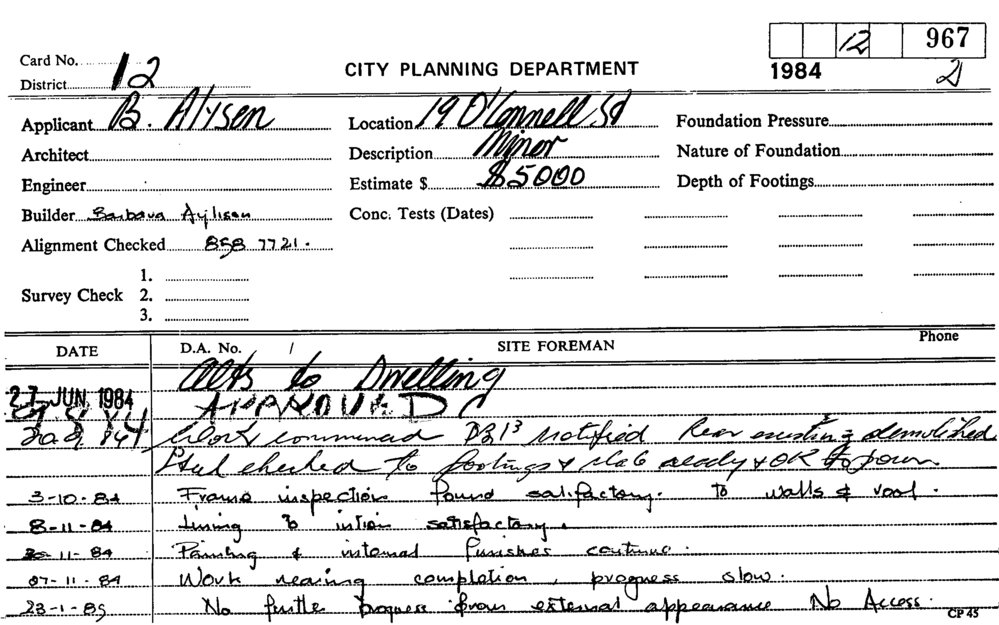 12 967
1984 2
Card No. 12
District
CITY PLANNING DEPARTMENT
Applicant B. Alysen
Location 19 O'Connell St
Foundation Pressure
Architect
Description Minor
Nature of Foundation
Engineer
Estimate $ $5000
Depth of Footings
Builder Barbara
Conc. Tests (Dates)
Alignment Checked 858 7721.
Survey Check 1.
2.
3.
DATE D.A. No. / SITE FOREMAN Phone
Alts to Dwelling
27 JUN 1984 APPROVED
9 8 84
Work commenced notified Rear existing demolished.
Steel checked to footings & slab ready & OK to pour.
3-10-84 Frame inspection found satisfactory. To walls & roof.
8-11-84 Lining to satisfactory.
11-84 & internal finishes continue.
-11-84 Work nearing completion, progress slow.
23-1-85 No further progress from external appearance No Access.
CP 45